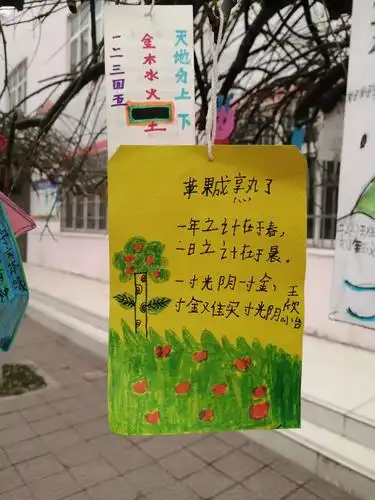 天地分上下
金木水火土
一二三四五
苹果成熟了
一年之计在于春，
一日之计在于晨。
一寸光阴一寸金，
寸金难买寸光阴
王欣怡